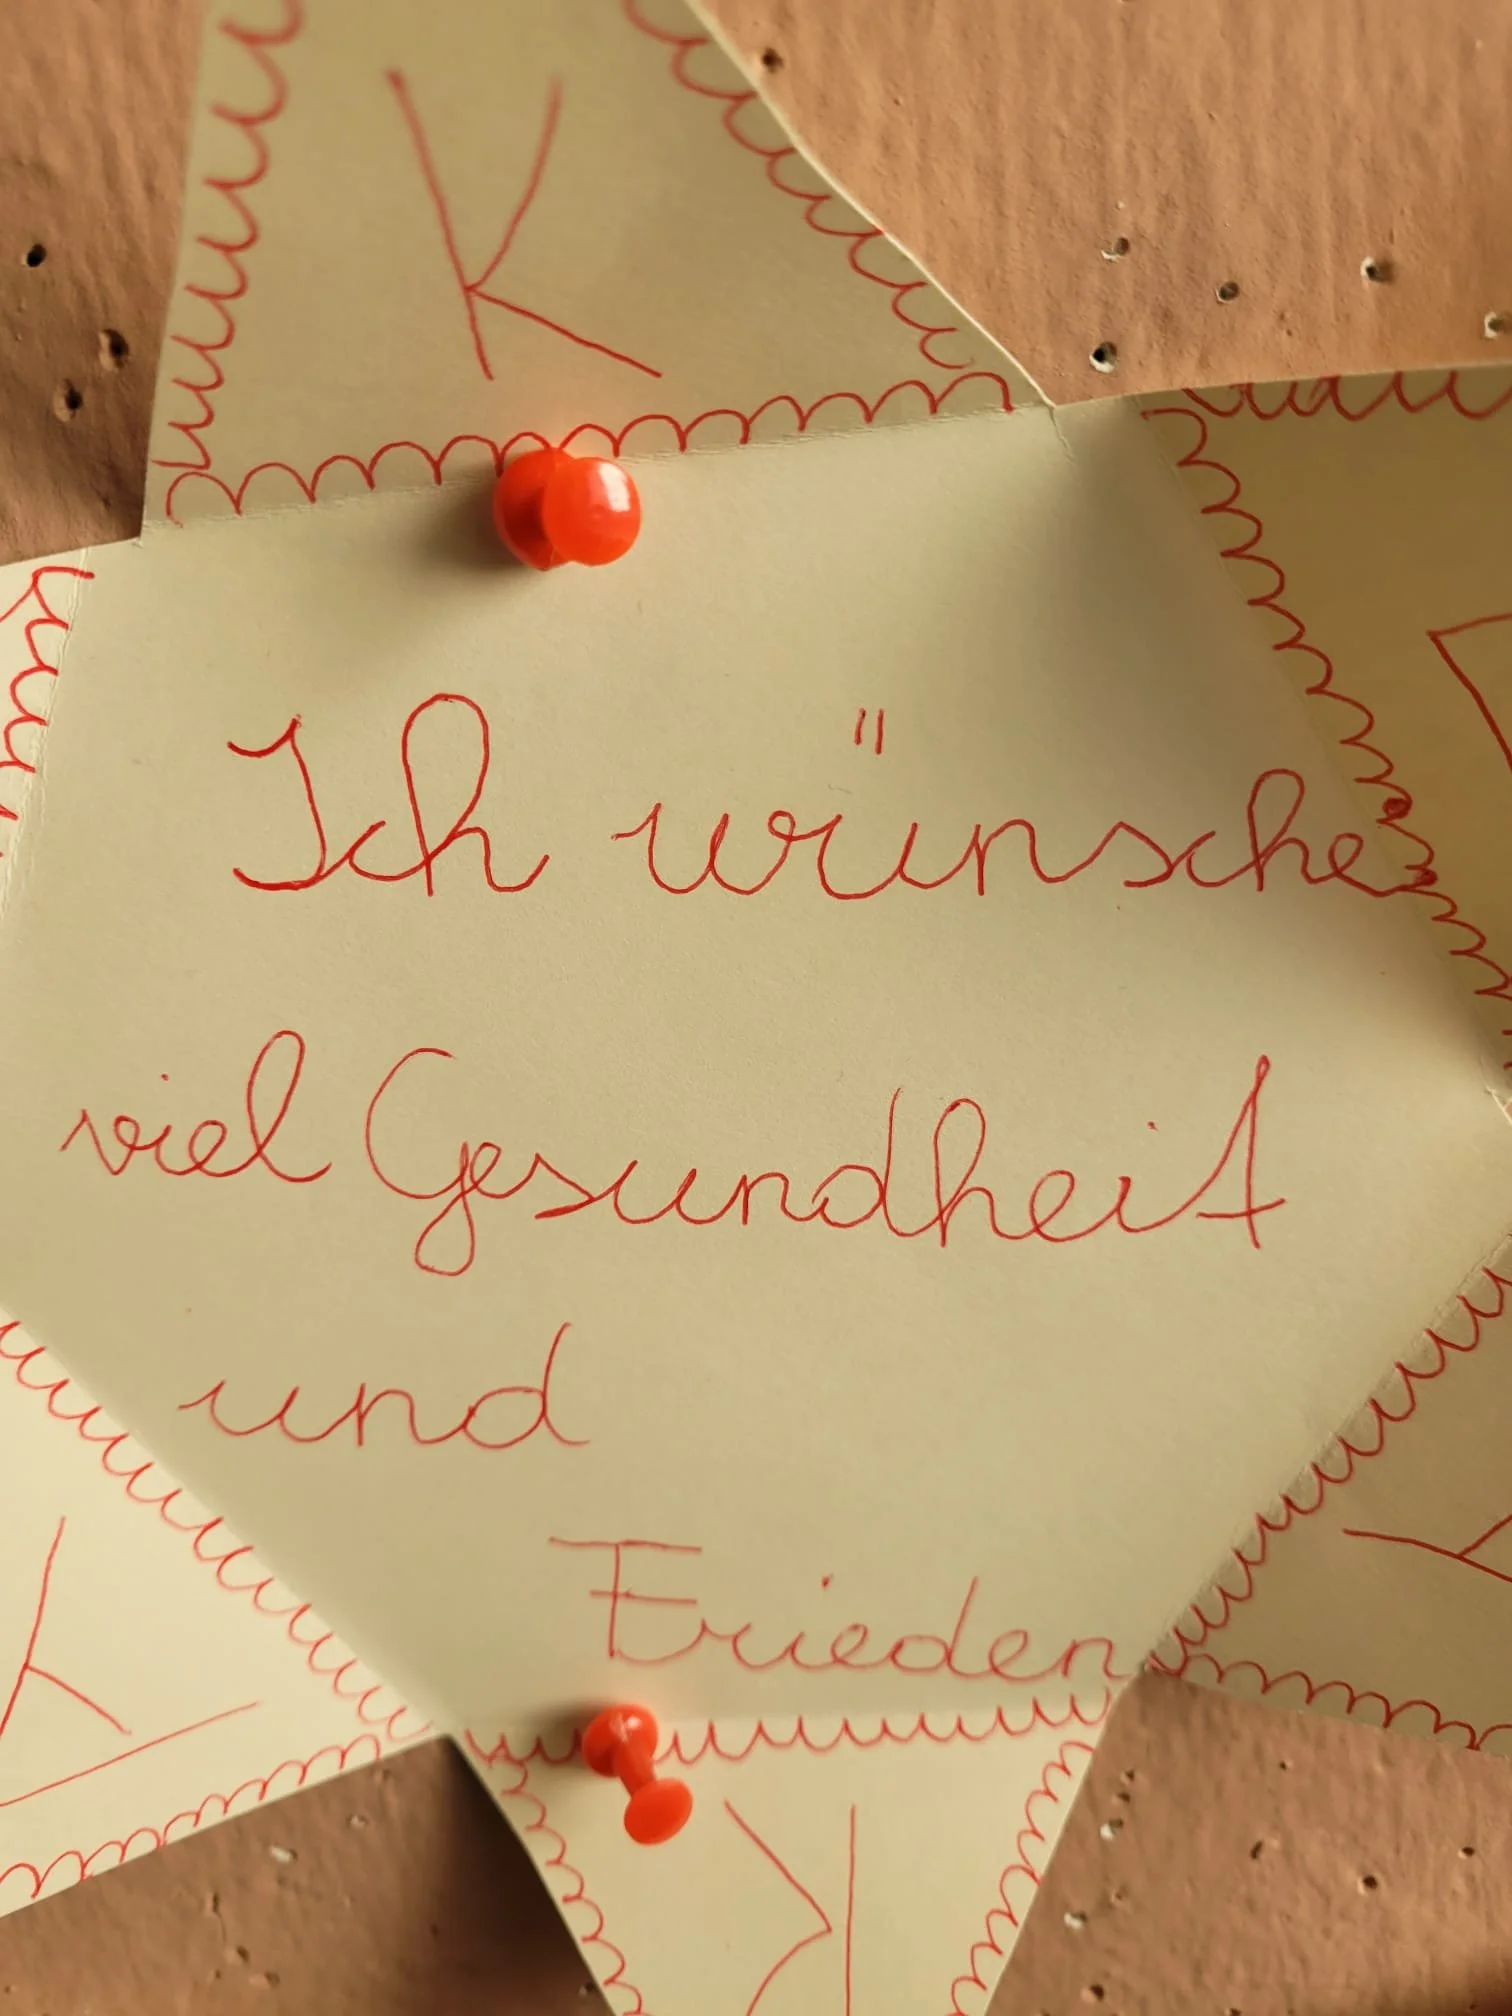 K
Ich wünsche
viel Gesundheit
und
Frieden
K